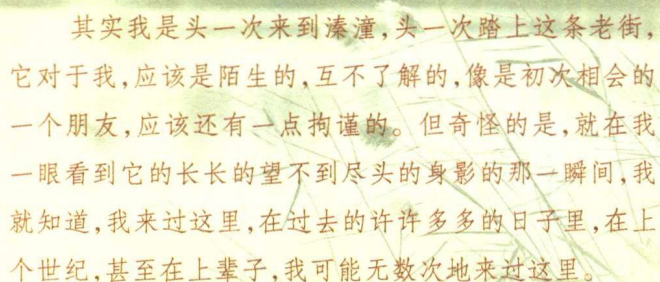 其实我是头一次来到溱潼,头一次踏上这条老街,
它对于我,应该是陌生的,互不了解的,像是初次相会的
一个朋友,应该还有一点拘谨的。但奇怪的是,就在我
一眼看到它的长长的望不到尽头的身影的那一瞬间,我
就知道,我来过这里,在过去的许许多多的日子里,在上
个世纪,甚至在上辈子,我可能无数次地来过这里。